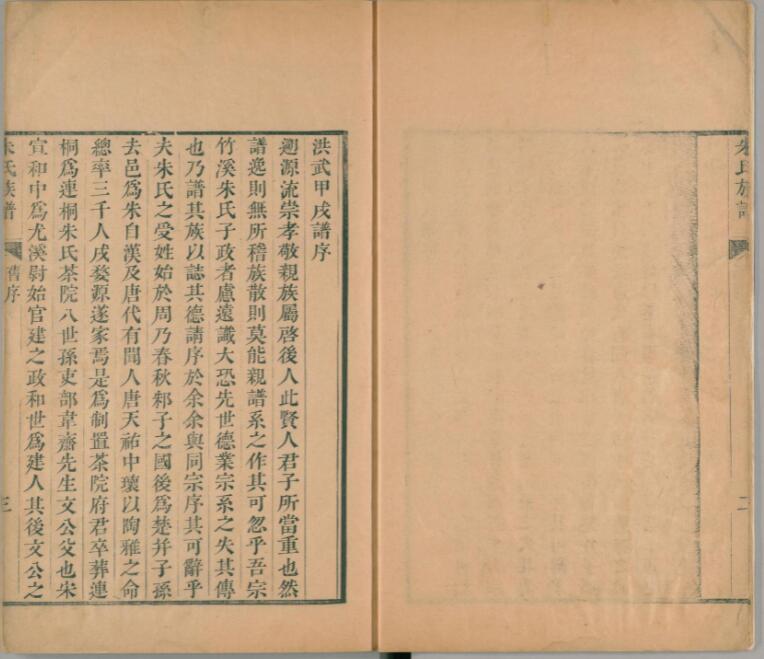 朱氏族譜
二
洪武甲戌譜序
遡源流崇孝敬親族屬啓後人此賢人君子所當重也然
譜逸則無所稽族散則莫能親譜系之作其可忽乎吾宗
竹溪朱氏子政者慮遠識大恐先世德業宗系之失其傳
也乃譜其族以誌其德請序於余余與同宗序其可辭乎
夫朱氏之受姓始於周乃春秋邾子之國後爲楚并子孫
去邑爲朱自漢及唐代有聞人唐天祐中瓌以陶雅之命
總率三千人戍婺源遂家焉是爲制置茶院府君卒葬連
桐爲連桐朱氏茶院八世孫吏部韋齋先生文公父也宋
宣和中爲尤溪尉始官建之政和世爲建人其後文公之
朱氏族譜
舊序
三